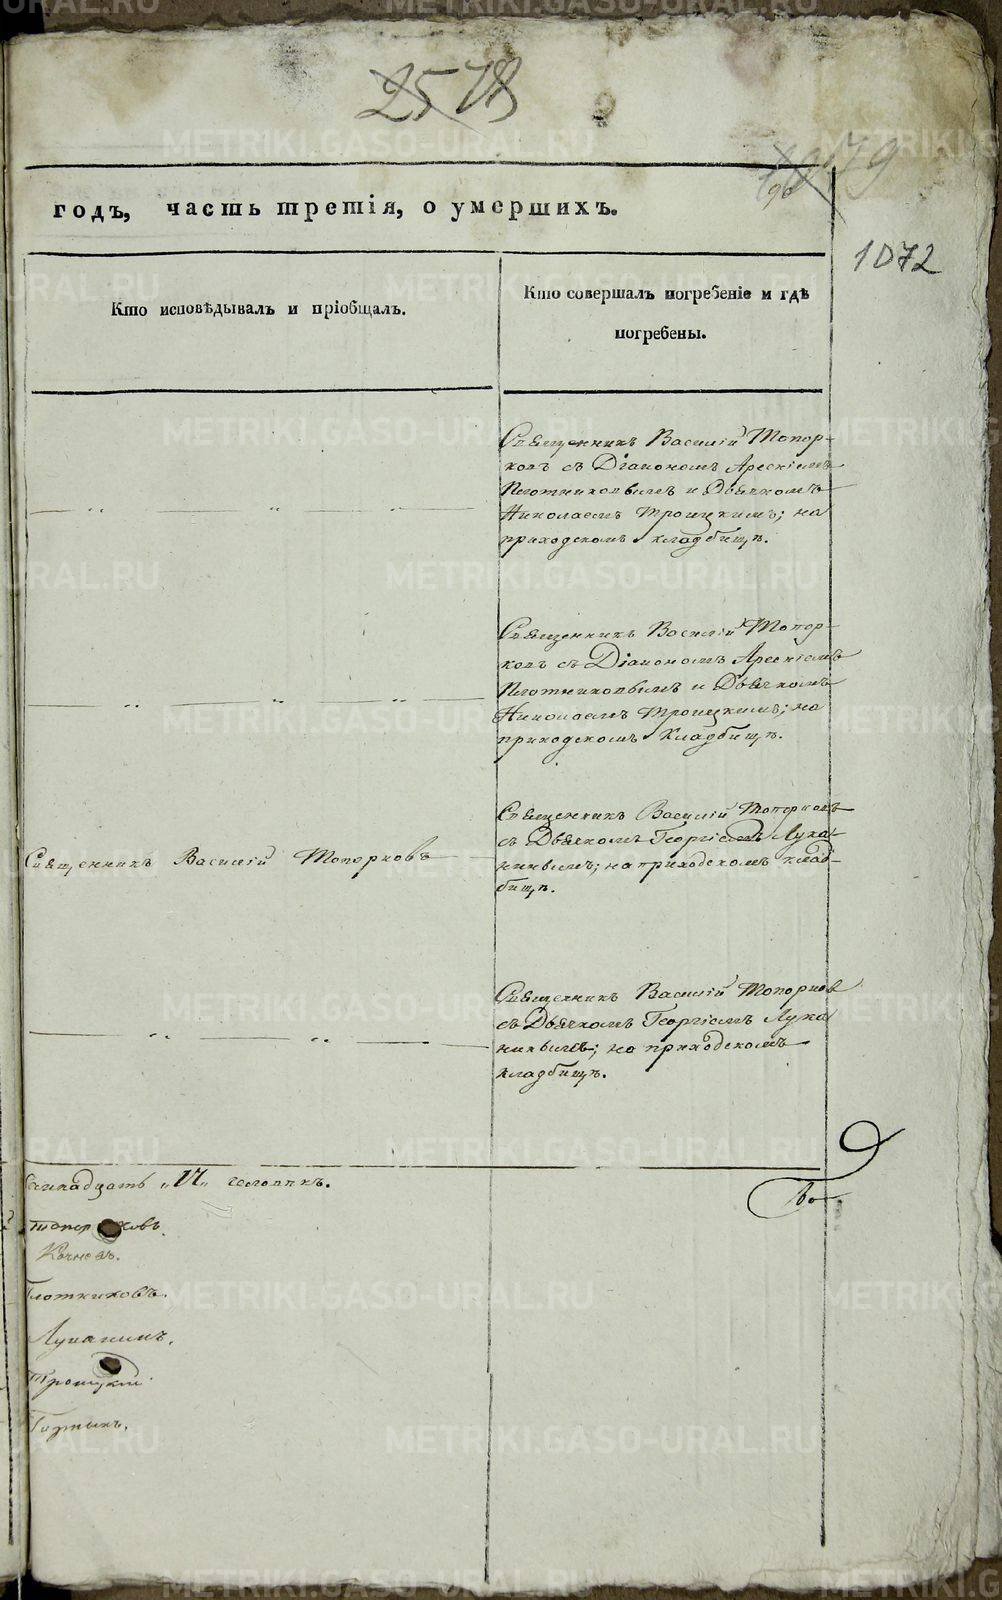 2578
1079
90
годъ, часть третія, о умершихъ.
1072
Кто исповѣдывалъ и пріобщалъ.
Кто совершалъ погребеніе и гдѣ
погребены.
Священникъ Василій Топор-
ковъ съ Діакономъ Арсеніемъ
Плотниковымъ и Дьячкомъ
Николаемъ Троицкимъ; на
приходскомъ кладбищѣ.
Священникъ Василій Топор-
ковъ съ Діакономъ Арсеніемъ
Плотниковымъ и Дьячкомъ
Николаемъ Троицкимъ; на
приходскомъ кладбищѣ.
Священникъ Василій Топорковъ
Священникъ Василій Топорковъ
съ Дьячкомъ Георгіемъ Лука-
нинымъ; на приходскомъ клад-
бищѣ.
Священникъ Василій Топорковъ
съ Дьячкомъ Георгіемъ Лука-
нинымъ; на приходскомъ
кладбищѣ.
человѣкъ.
Топорковъ.
Плотниковъ.
Луканинъ.
Троицкій
METRIKI.GASO-URAL.RU